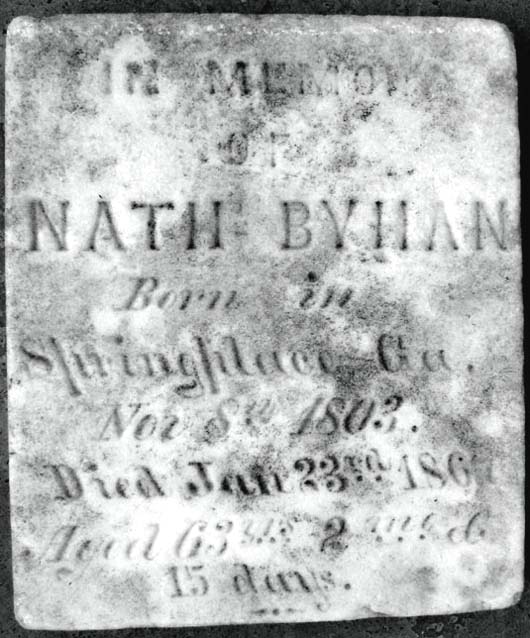 IN MEMORY
OF
NATHˡ BYHAN
Born in
Springplace Ga.
Nov 8th 1803.
Died Jan 23rd 1867
Aged 63 yrs 2 ms &
15 days.